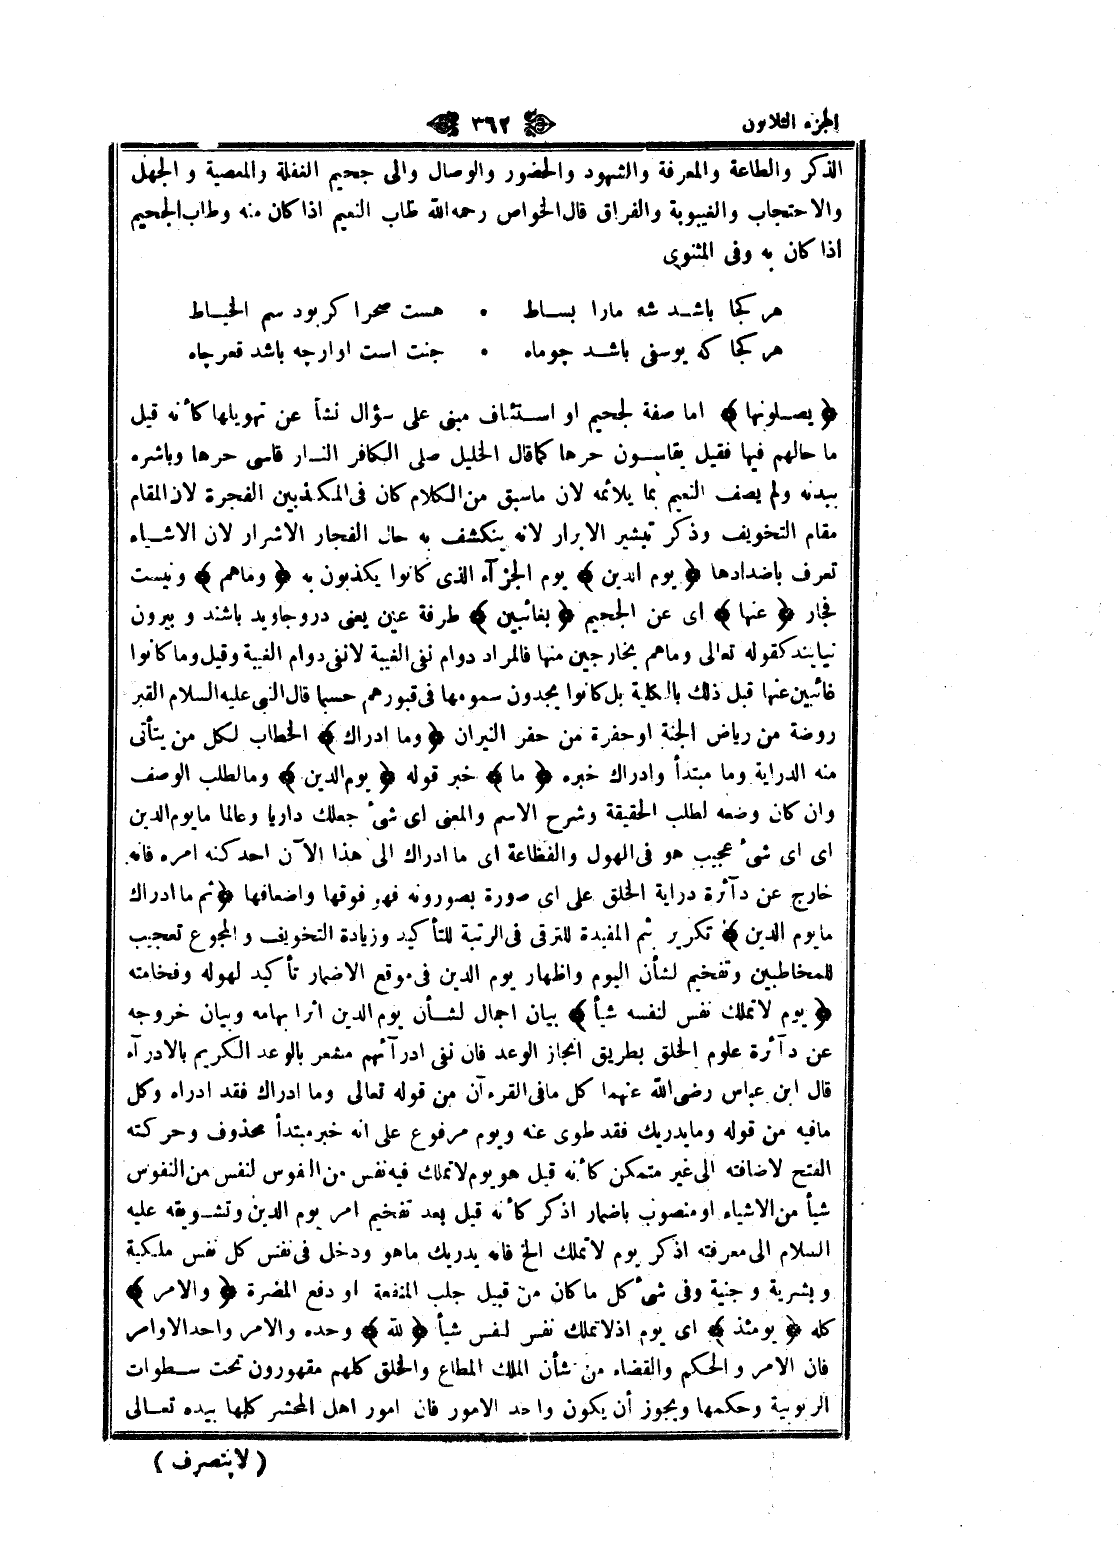 الجزء الثلاثون ٣٦٢
الذكر والطاعة والمعرفة والشهود والحضور والوصال والى جحيم الغفلة والمعصية و الجهل
والاحتجاب والغيبوبة والفراق قال الخواص رحمه الله طاب النعيم اذا كان منه وطاب الجحيم
اذا كان به وفى المثنوى
هر كجا باشد شه مارا بساط • هست صحرا كر بود سم الخياط
هر كجا كه يوسفى باشد چوماه • جنت است اوارچه باشد قعرچاه
﴿ يصلونها ﴾ اما صفة لجحيم او استئناف مبنى على سؤال نشأ عن تهويلها كأنه قيل
ما حالهم فيها فقيل يقاسون حرها كما قال الخليل صلى الكافر النار قاسى حرها وباشره
ببدنه ولم يصف النعيم بما يلائمه لان ماسبق من الكلام كان فى المكذبين الفجرة لان المقام
مقام التخويف وذكر تبشير الابرار لانه ينكشف به حال الفجار الاشرار لان الاشياء
تعرف باضدادها ﴿ يوم الدين ﴾ يوم الجزآء الذى كانوا يكذبون به ﴿ وماهم ﴾ ونيست
فجار ﴿ عنها ﴾ اى عن الجحيم ﴿ بغائبين ﴾ طرفة عين يعنى دروجاويد باشند و بيرون
نيايند كقوله تعالى وماهم بخارجين منها فالمراد دوام نفى الغيبة لانفى دوام الغيبة وقيل وما كانوا
غائبين عنها قبل ذلك بالكلية بل كانوا يجدون سمومها فى قبورهم حسبما قال النبى عليه السلام القبر
روضة من رياض الجنة اوحفرة من حفر النيران ﴿ وما ادراك ﴾ الخطاب لكل من يتأتى
منه الدراية وما مبتدأ وادراك خبره ﴿ ما ﴾ خبر قوله ﴿ يوم الدين ﴾ ومالطلب الوصف
وان كان وضعه لطلب الحقيقة وشرح الاسم والمعنى اى شىء جعلك داريا وعالما مايوم الدين
اى اى شىء عجيب هو فى الهول والفظاعة اى ما ادراك الى هذا الآن احد كنه امره فانه
خارج عن دآئرة دراية الخلق على اى صورة يصورونه فهو فوقها واضعافها ﴿ ثم ما ادراك
مايوم الدين ﴾ تكرير بثم المفيدة للترقى فى الرتبة للتأكيد وزيادة التخويف و المجموع تعجيب
للمخاطبين وتفخيم لشأن اليوم واظهار يوم الدين فى موقع الاضمار تأكيد لهوله وفخامته
﴿ يوم لاتملك نفس لنفسه شيأ ﴾ بيان اجمالى لشأن يوم الدين اثرا بهامه وبيان خروجه
عن دآئرة علوم الخلق بطريق انجاز الوعد فان نفى ادرآئهم مشعر بالوعد الكريم بالادرآء
قال ابن عباس رضى الله عنهما كل مافى القرءآن من قوله تعالى وما ادراك فقد ادراه وكل
مافيه من قوله ومايدريك فقد طوى عنه ويوم مرفوع على انه خبر مبتدأ محذوف وحركته
الفتح لاضافته الى غير متمكن كأنه قيل هو يوم لاتملك فيه نفس من النفوس لنفس من النفوس
شيأ من الاشياء او منصوب باضمار اذكر كأنه قيل بعد تفخيم امر يوم الدين وتشويقه عليه
السلام الى معرفته اذكر يوم لاتملك الخ فانه يدريك ماهو ودخل فى نفس كل نفس ملكية
و بشرية و جنية وفى شىء كل ما كان من قبيل جلب المنفعة او دفع المضرة ﴿ والامر ﴾
كله ﴿ يومئذ ﴾ اى يوم اذلاتملك نفس لنفس شيأ ﴿ لله ﴾ وحده والامر واحد الاوامر
فان الامر و الحكم والقضاء من شأن الملك المطاع والخلق كلهم مقهورون تحت سطوات
الربوبية وحكمها ويجوز أن يكون واحد الامور فان امور اهل المحشر كلها بيده تعالى
( لايتصرف )